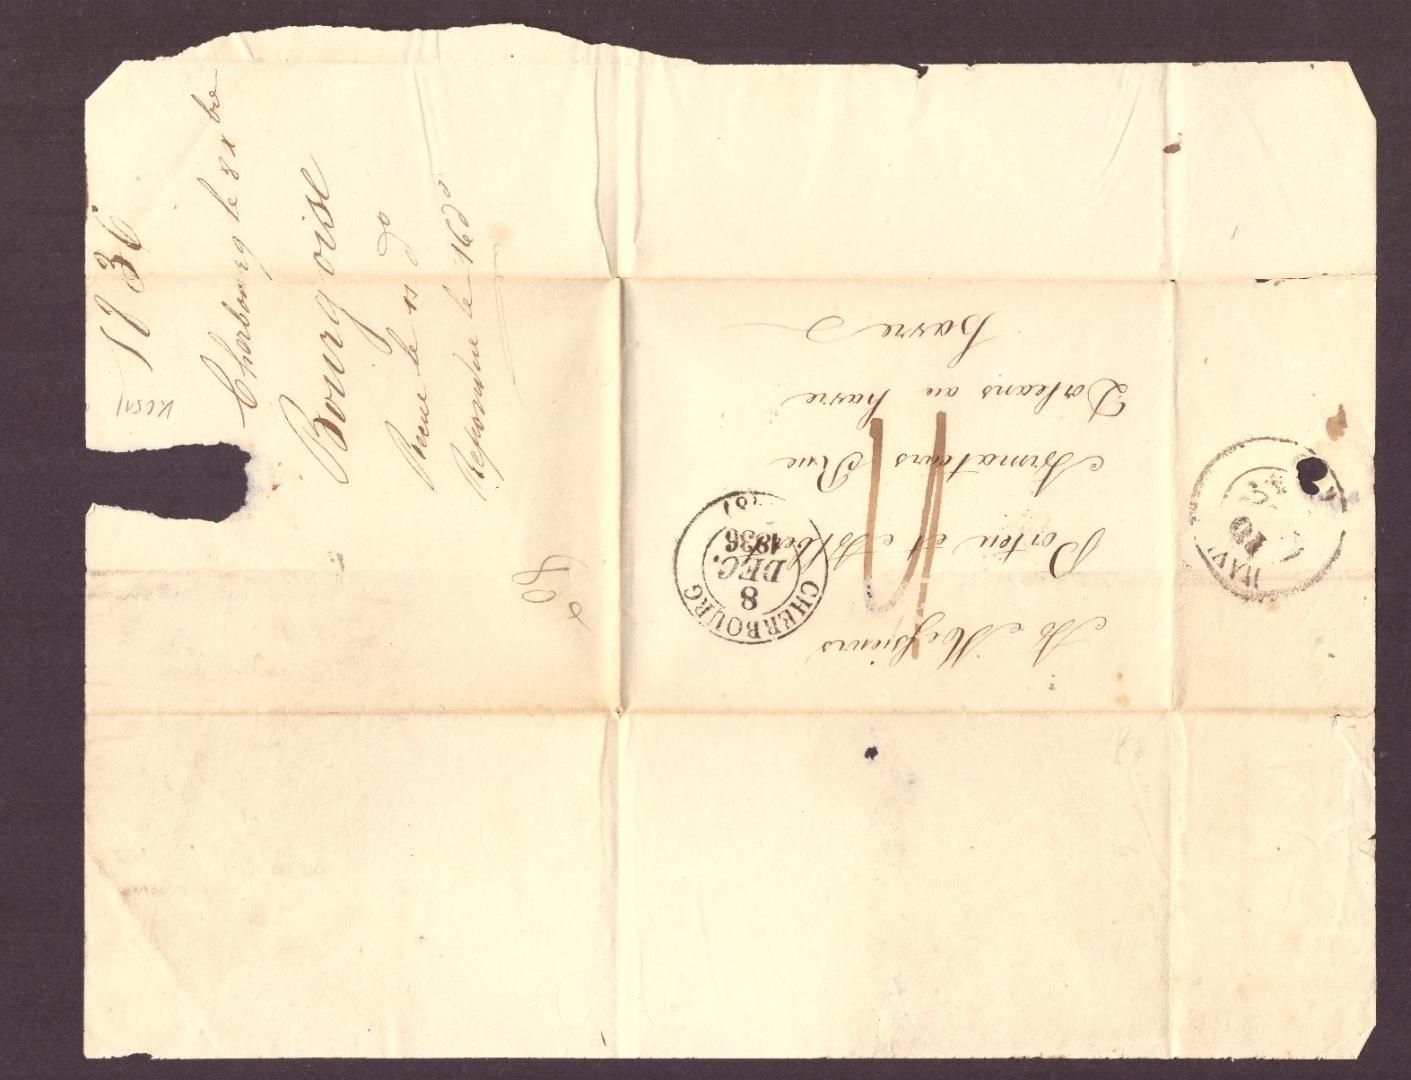 1836
Cherbourg le 8 Xbre
Bourgoise
Recue le 11 do
Repondue le 16 do
A Messieurs
Armateurs Rue
Dorleans au havre
havre
CHERBOURG
8
DEC.
1836
10